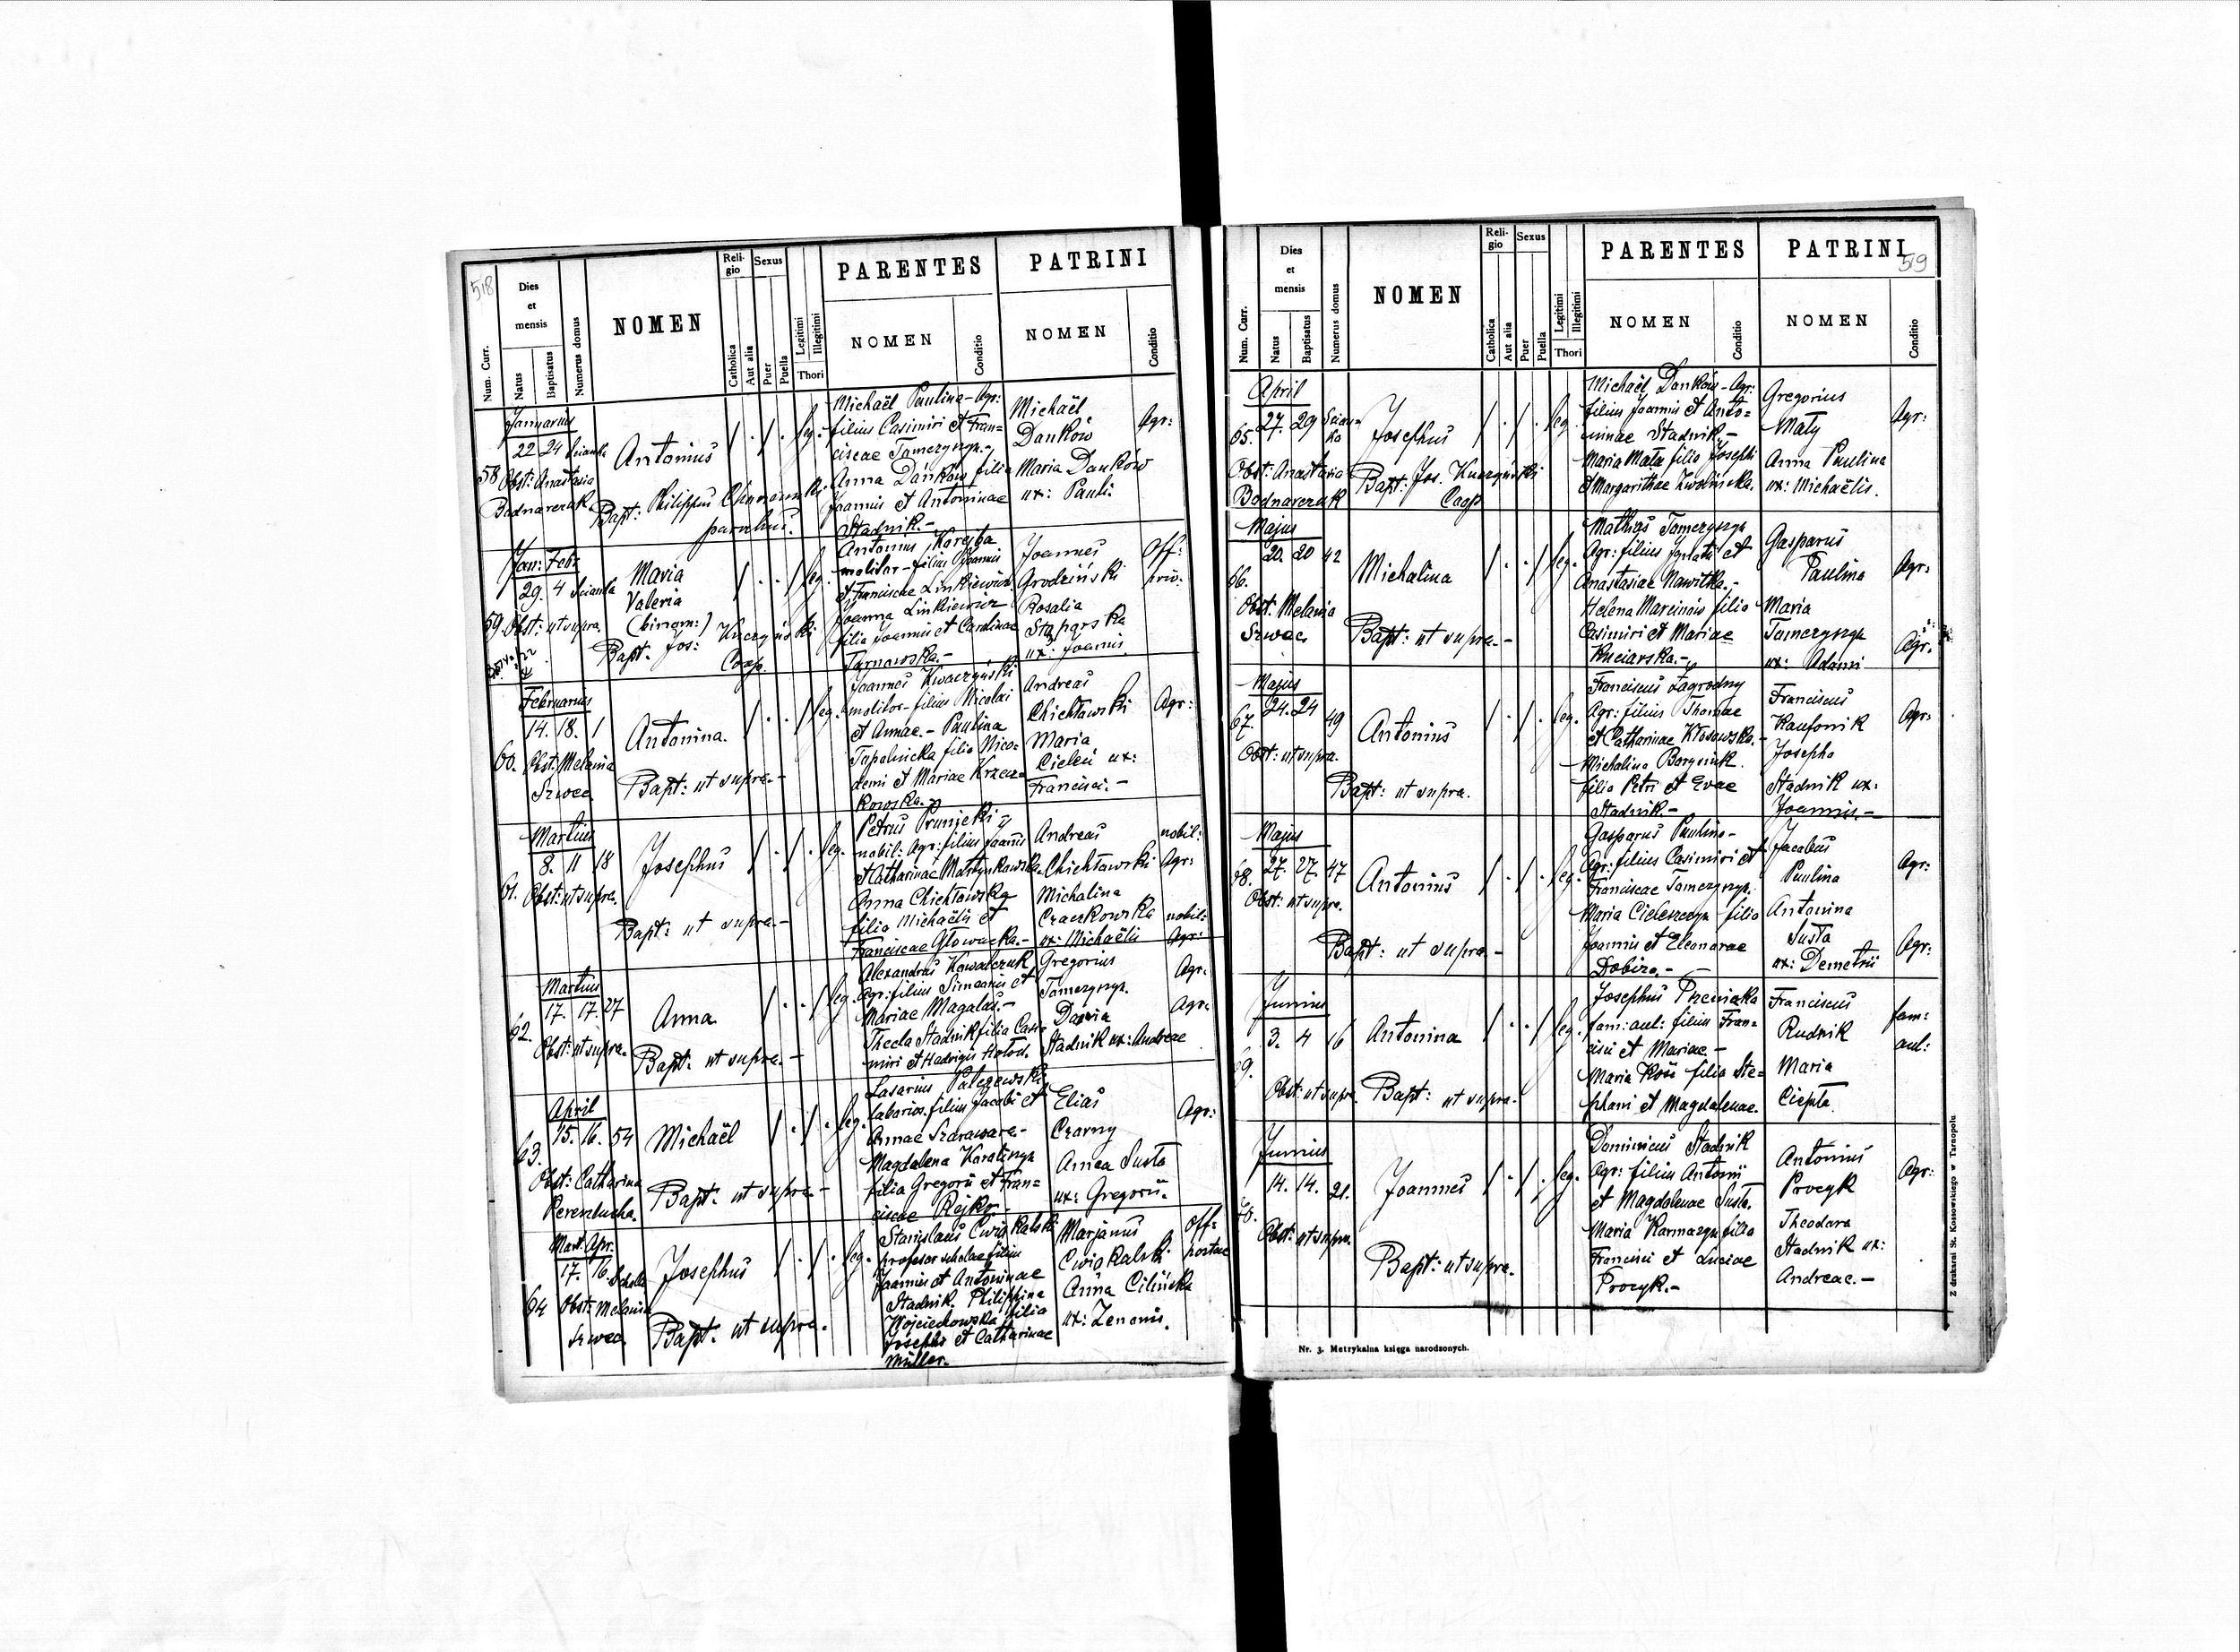 518
Num. Curr.
Dies
et
mensis
Natus
Baptisatus
Numerus domus
NOMEN
Reli-
gio
Catholica
Aut alia
Sexus
Puer
Puella
Legitimi
Illegitimi
Thori
PARENTES
NOMEN
Conditio
PATRINI
NOMEN
Conditio
58
Januarius
22 24 Scianka
Obst: Anastasia
Bednarczuk
Antonius
Bapt: Philippus
parochus.
leg.
Michaël Paulina - Agr:
filius Casimiri et Fran=
ciscae Tomczyszyn.-
Anna Danków filia
Joannis et Antoninae
Stadnik.-
Michaël
Danków
Maria Danków
ux: Pauli.
Agr:
59.
Jan: Febr.
29. 4 Scianka
Obst: ut supra.
Maria
Valeria
(binom:)
Bapt. Jos: Kuczyński
Coop.
leg.
Antonius Koreyba
molitor - filius Joannis
et Franciscae Linkiewicz.
Joanna Linkiewicz
filia Joannis et Carolinae
Tarnowska.-
Joannes
Grodziński
Rosalia
ux: Joannis.
Off:
priv:
60.
Februarius
14. 18. 1
Obst: Melania
Szwec.
Antonina.
Bapt: ut supra.-
leg.
Joannes Kwaczyński
molitor - filius Nicolai
et Annae.- Paulina
Topolnicka filia Nico=
demi et Mariae Krzecz=
kowska.-
Andreas
Chichławski
Maria
Cieleń ux:
Francisci.-
Agr:
61.
Martius
8. 11 18
Obst: ut supra.
Josephus
Bapt: ut supra.-
leg.
Petrus
nobil: Agr: filius Joannis
et Catharinae
Anna Chichławska
filia Michaëlis et
Franciscae Głowacka.-
Andreas
Chichławski
Michalina
Czaczkowska
ux: Michaëlis
nobil:
Agr:
nobil:
Agr:
62.
Martius
17. 17. 27
Obst: ut supra.
Anna
Bapt: ut supra.-
leg.
Alexandrus Kowalczuk
Agr: filius Simeonis et
Mariae Magalas.-
Thecla Stadnik filia Casi=
miri et Hedvigis Hołod.
Gregorius
Tomczyszyn.
Daria
Stadnik ux: Andreae
Agr.
Agr.
63.
April
15. 16. 54
Obst: Catharina
Perezlucha.
Michaël
Bapt: ut supra.-
leg.
Lasarius Palczewski
laborios. filius Jacobi et
Annae Szarawara.-
Magdalena
filia Gregorii et Fran=
ciscae Rejko.-
Elias
Czarny
Amea Susta
ux: Gregorii.
Agr:
64
Mart. Apr.
17. 16. Schola
Obst: Melania
Szwec.
Josephus
Bapt: ut supra.
leg.
Stanislaus Ćwiąkalski
profesor scholae filius
Joannis et Antoninae
Stadnik. Philippina
Wojciechowska filia
Josephi et Catharinae
Müller.
Marjanus
Cwiąkalski
Anna Cilińska
ux: Zenonis.
Off:
postae
519
Num. Curr.
Dies
et
mensis
Natus
Baptisatus
Numerus domus
NOMEN
Reli-
gio
Catholica
Aut alia
Sexus
Puer
Puella
Legitimi
Illegitimi
Thori
PARENTES
NOMEN
Conditio
PATRINI
NOMEN
Conditio
65.
April
27. 29 Scian=
ka
Obst: Anastasia
Bednarczuk
Josephus
Bapt: Jos. Kuczyński
Coop
leg.
Michaël Danków - Agr:
filius Joannis et Anto=
ninae Stadnik.-
Maria Mała filia Josephi
et Margarithae Zwolińska.
Gregorius
Mały
Anna Paulina
ux: Michaëlis.
Agr:
66.
Majus
20. 20 42
Obst: Melania
Szwec.
Michalina
Bapt: ut supra.-
leg.
Mathias Tomczyszyn
Agr: filius Ignatii et
Anastasiae Nawitka.-
Helena Marcinów filia
Casimiri et Mariae
Kuciarska.-
Gasparus
Paulina
Maria
Tomczyszyn
ux: Adami
Agr:
Agr.
67.
Majus
24. 24 49
Obst: ut supra.
Antonius
Bapt: ut supra.
leg.
Franciscus Zagrodny
Agr: filius Thomae
et Catharinae Kłosowska.-
Michalina Boryśink.
filia Petri et Evae
Stadnik.-
Franciscus
Josepha
Stadnik ux:
Joannis.-
Agr:
68.
Majus
27. 27. 47
Obst: ut supra.
Antonius
Bapt: ut supra.-
leg.
Gasparus Paulina -
Agr: filius Casimiri et
Franciscae Tomczyszyn.
Maria Cieleszczyn filia
Joannis et Eleonorae
Dobiza.-
Jacobus
Paulina
Antonina
Susta
ux: Demetrii
Agr:
Agr:
69.
Junius
3. 4 16
Obst: ut supra.
Antonina
Bapt: ut supra.
leg.
Josephus
fam: aul: filius Fran=
cisci et Mariae -
Maria Koś filia Ste=
phani et Magdalenae.
Franciscus
Rudnik
Maria
Ciepła.
fam:
aul:
70.
Junius
14. 14. 21.
Obst: ut supra.
Joannes
Bapt: ut supra.
leg.
Dominicus Stadnik
Agr: filius Antonii
et Magdalenae Susta.
Maria Karmazyn filia
Francisci et Luciae
Procyk.-
Antonius
Procyk
Theodora
Stadnik ux:
Andreae.-
Agr:
Nr. 3. Metrykalna księga narodzonych.
Z drukarni St. Kossowskiego w Tarnopolu